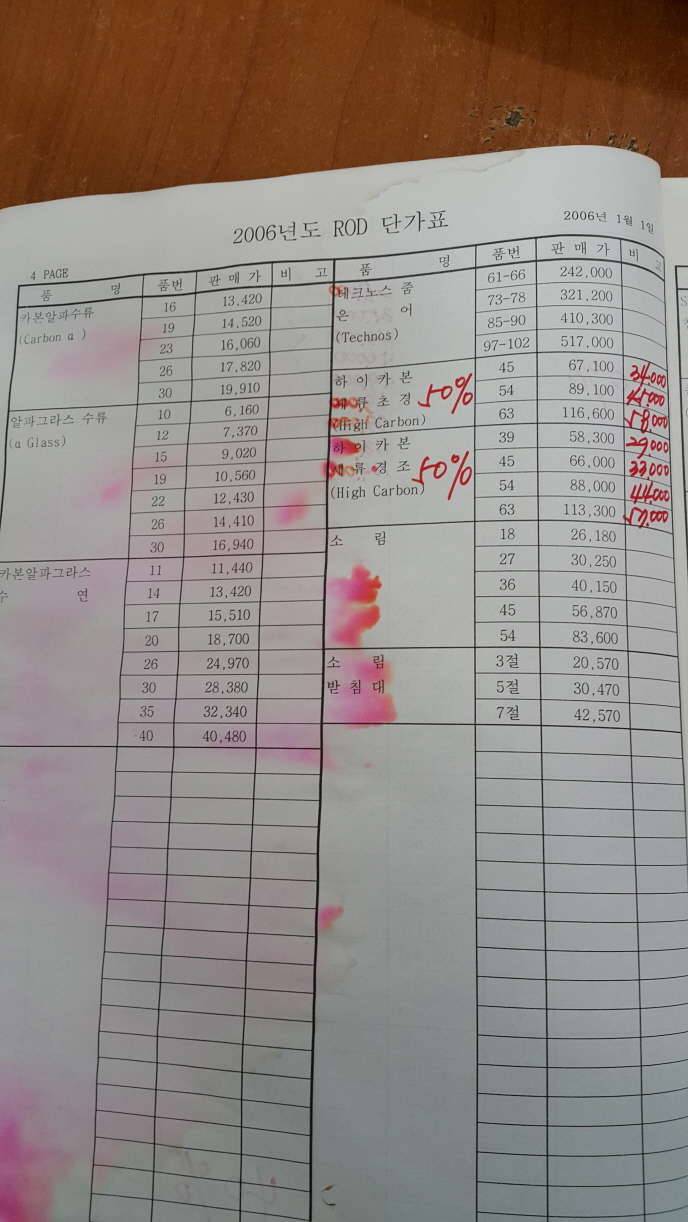 2006년도 ROD 단가표
2006년 1월 1일
4 PAGE
품 명 품번 판 매 가 비 고
카본알파수류 16 13,420
(Carbon α) 19 14,520
23 16,060
26 17,820
30 19,910
알파그라스 수류 10 6,160
(α Glass) 12 7,370
15 9,020
19 10,560
22 12,430
26 14,410
30 16,940
카본알파그라스 11 11,440
수 연 14 13,420
17 15,510
20 18,700
26 24,970
30 28,380
35 32,340
40 40,480
품 명 품번 판 매 가 비 고
테크노스 줌 61-66 242,000
은 어 73-78 321,200
(Technos) 85-90 410,300
97-102 517,000
하 이 카 본 45 67,100 34,000
류 초 경 50% 54 89,100 45,000
(High Carbon) 63 116,600 58,000
하 이 카 본 39 58,300 29,000
류 경 조 50% 45 66,000 33,000
(High Carbon) 54 88,000 44,000
63 113,300 57,000
소 림 18 26,180
27 30,250
36 40,150
45 56,870
54 83,600
소 림 3절 20,570
받 침 대 5절 30,470
7절 42,570